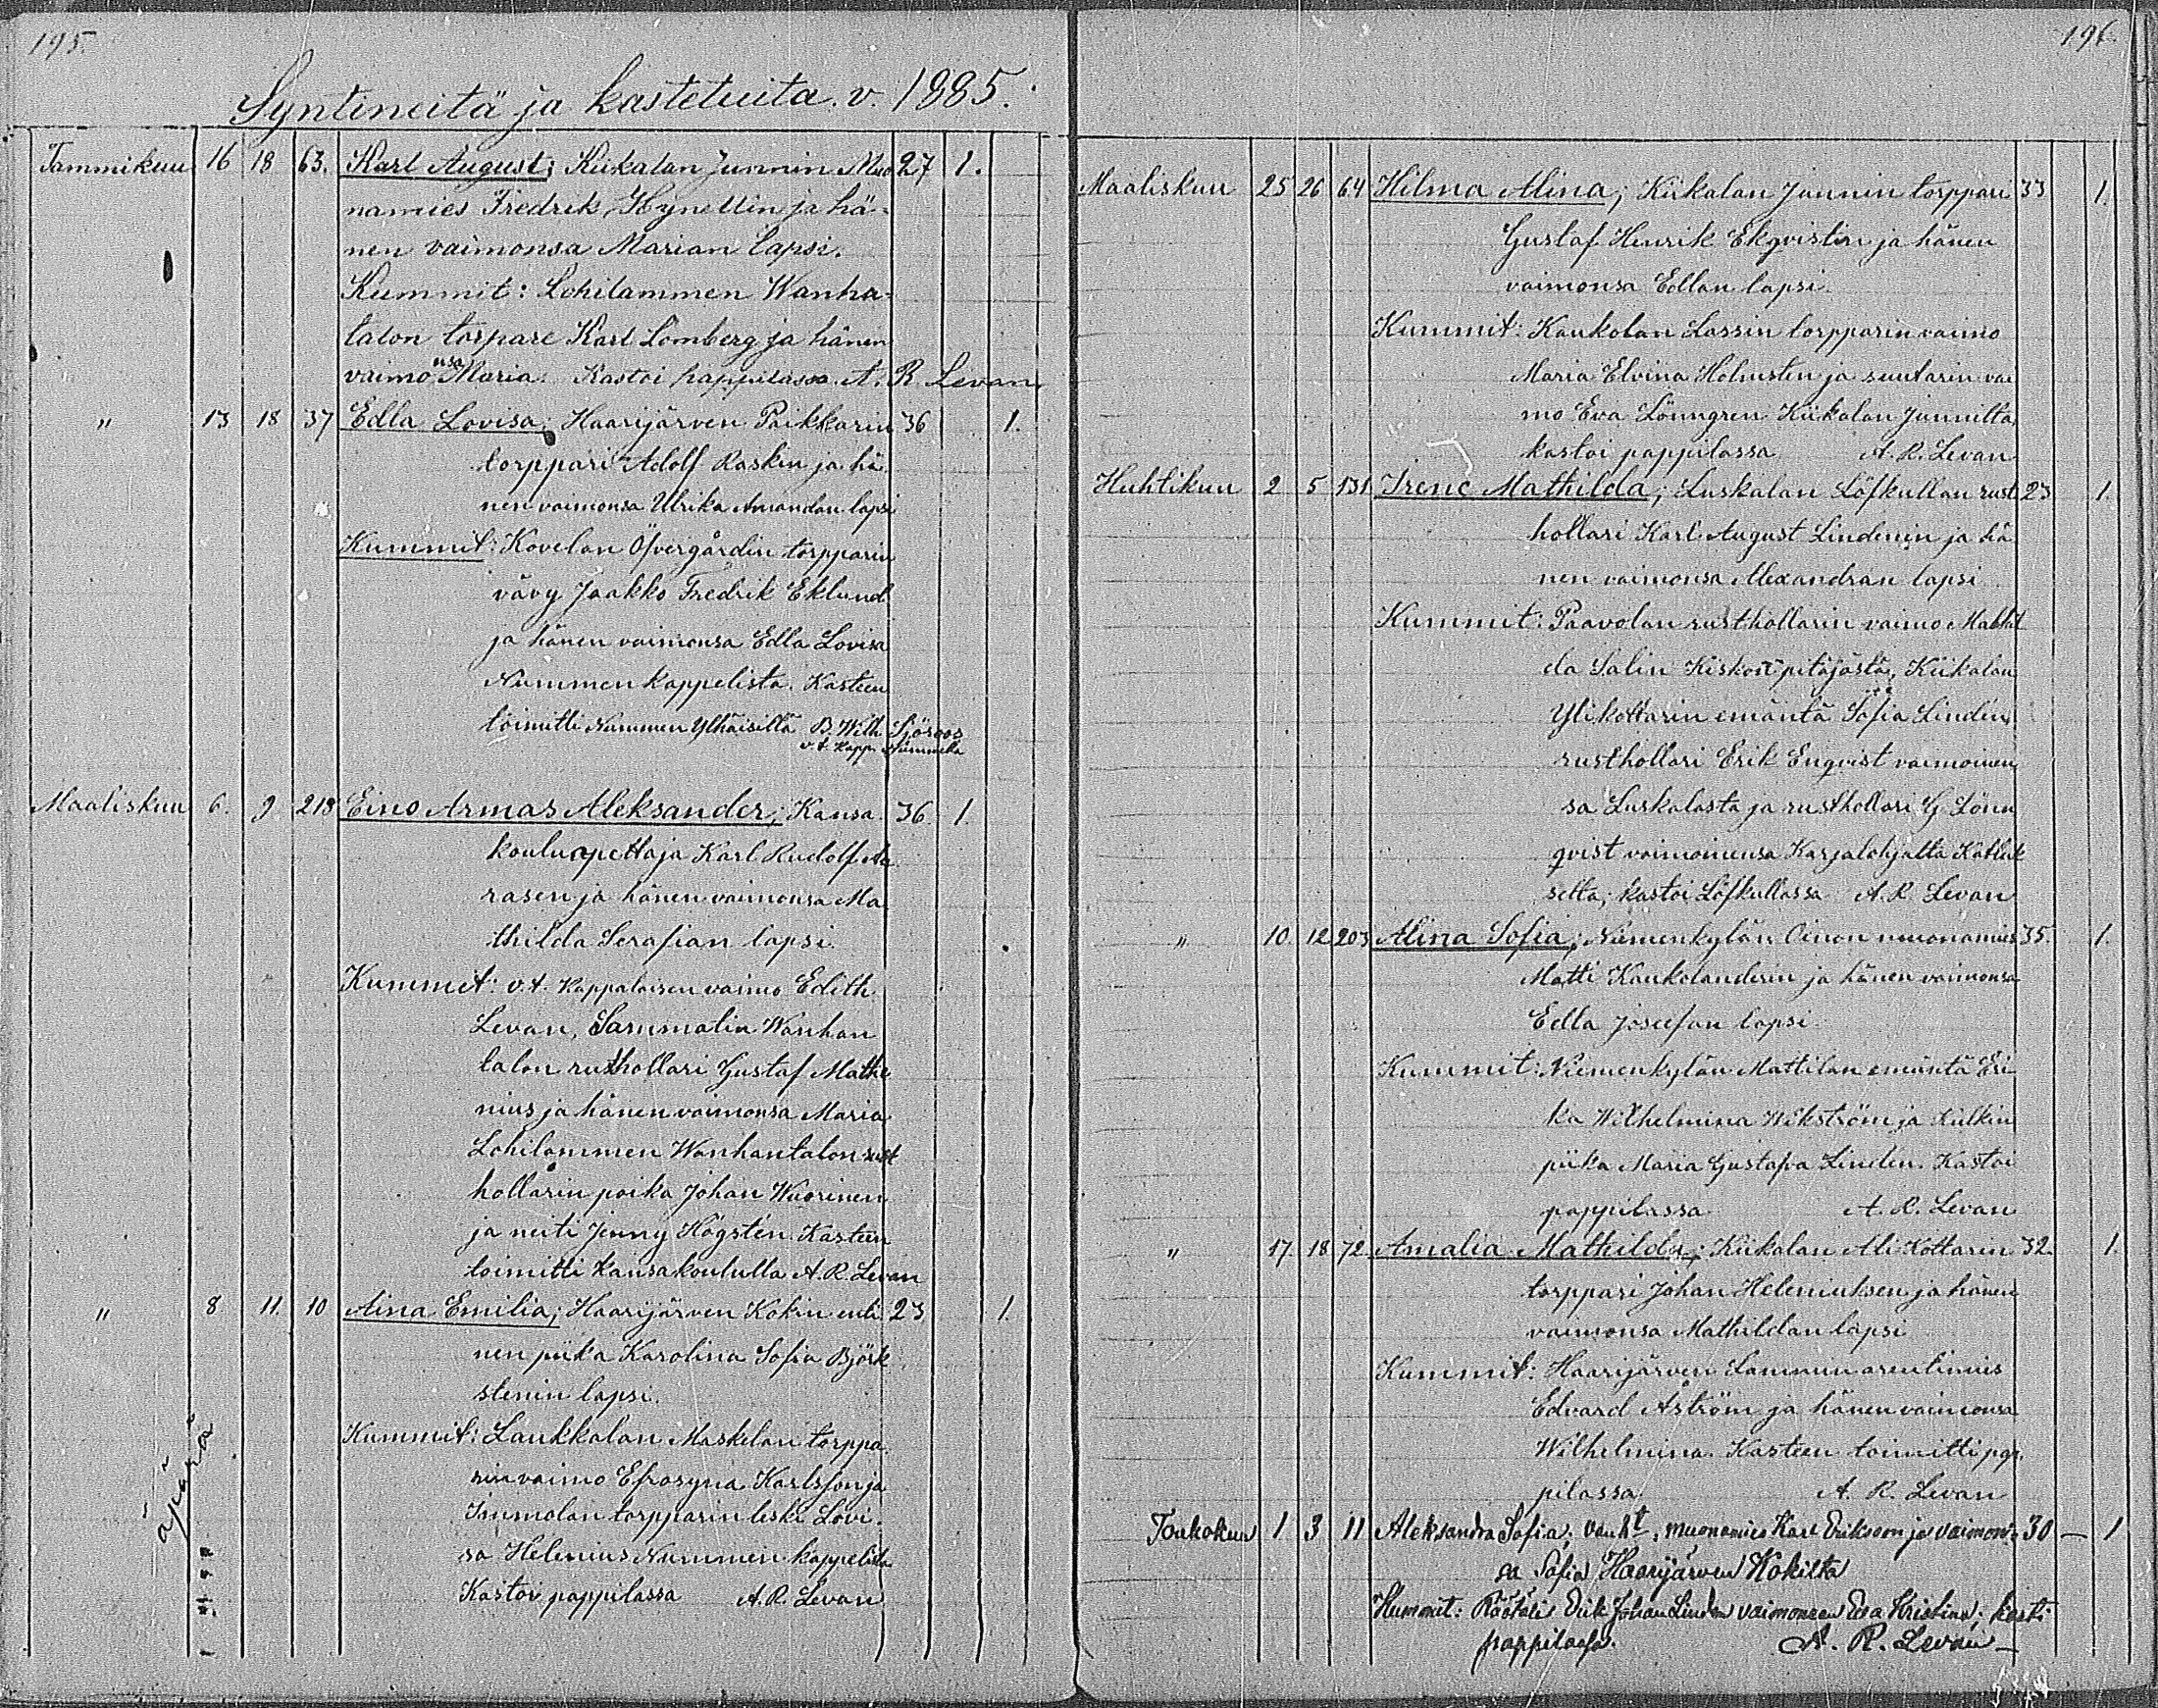 195.
Syntineitä ja kastetuita v. 1885.
Tammikuu 16 18 63. Karl August; Kiikalan Junnin Muo 27 1.
namies Fredrik Hynellin ja hä-
nen vaimonsa Marian lapsi.
Kummit: Lohilammen Wanha-
talon torpare Karl Lomberg ja hänen
vaimonsa Maria. Kastoi pappilassa A. R. Levan.
" 13 18 37 Edla Lovisa; Haarijärven Paikkarin 36 1.
torppari Adolf Raskin ja hä-
nen vaimonsa Ulrika Amandan lapsi
Kummit: Kovelan Öfvergårdin torpparin
vävy Jaakko Fredrik Eklund
ja hänen vaimonsa Edla Lovisa
Nummen kappelista. Kasteen
toimitti Nummen B. Wilh. Sjöroos
v. t. kapp. Nummella
Maaliskuu 6. 9 218 Eino Armas Aleksander; Kansa 36 1.
kouluopettaja Karl Rudolf
rasen ja hänen vaimonsa Ma
thilda Serafian lapsi.
Kummit: v.t. Kappalaisen vaimo Edith
Levan, Sammatin Wanhan
talon rusthollari Gustaf Mathe
nius ja hänen vaimonsa Maria
Lohilammen Wanhantalon rust
hollarin poika Johan Wuorinen
ja neiti Jenny Högstén. Kasteen
toimitti Kansakoululla A. R. Levan
" 8 11. 10 Aina Emilia; Haarijärven Kokin enti 23 1.
nen piika Karolina Sofia Björk
stenin lapsi.
äpärä
Kummit: Laukkalan Maskelan torppa-
rin vaimo Efrosyna Karlsson ja
Immolan torpparin leski Lovi-
sa Helenius Nummen kappelista
Kastoi pappilassa A. R. Levan
196.
Maaliskuu 25 26 64 Hilma Alina; Kiikalan Junnin torppari 33 1.
Gustaf Henrik Ekqvistin ja hänen
vaimonsa Edlan lapsi.
Kummit: Kaukolan Lassin torpparin vaimo
Maria Elvina Holmsten ja suutarin vai
mo Eva Lönngren Kiikalan Junnilta,
kastoi pappilassa A. R. Levan
Huhtikuu 2 5 131 Irene Mathilda; Luskalan Löfkullan rust 23 1.
hollari Karl August Lindenin ja hä
nen vaimonsa Alexandran lapsi
Kummit: Paavolan rusthollarin vaimo Mathil
da Salin Kiskon pitäjästä, Kiikalan
Ylikottarin emäntä Sofia Lindén,
rusthollari Erik Enqvist vaimoinen
sa Luskalasta ja rusthollari G. Lönn
qvist vaimoinensa Karjalohjalta
selta, kastoi Löfkullassa A. R. Levan
" 10. 12 203 Alina Sofia; Niemenkylän Oinon muonamies 35. 1.
Matti Kaukolanderin ja hänen vaimonsa
Edla Josefan lapsi.
Kummit: Niemenkylän Mattilan emäntä Eri
ka Wilhelmina Wikström ja Kulkin
piika Maria Gustafva Linden. Kastoi
pappilassa A. R. Levan
" 17. 18 72. Amalia Mathilda; Kiikalan Ali Kottarin 32. 1.
torppari Johan Heleniuksen ja hänen
vaimonsa Mathildan lapsi
Kummit: Haarijärven Lammin arentimies
Edvard Åström ja hänen vaimonsa
Wilhelmina. Kasteen toimitti pap-
pilassa A. R. Levan
Toukokuu 1 3 11 Aleksandra Sofia; vanh:t: muonamies Karl Erikson ja vaimon- 30 — 1
sa Sofia Haarijärven Kokilta
Kummit: Räätäli Erik Johan Linden vaimoneen Eva Kristina; kasti
pappilassa. A. R. Levan